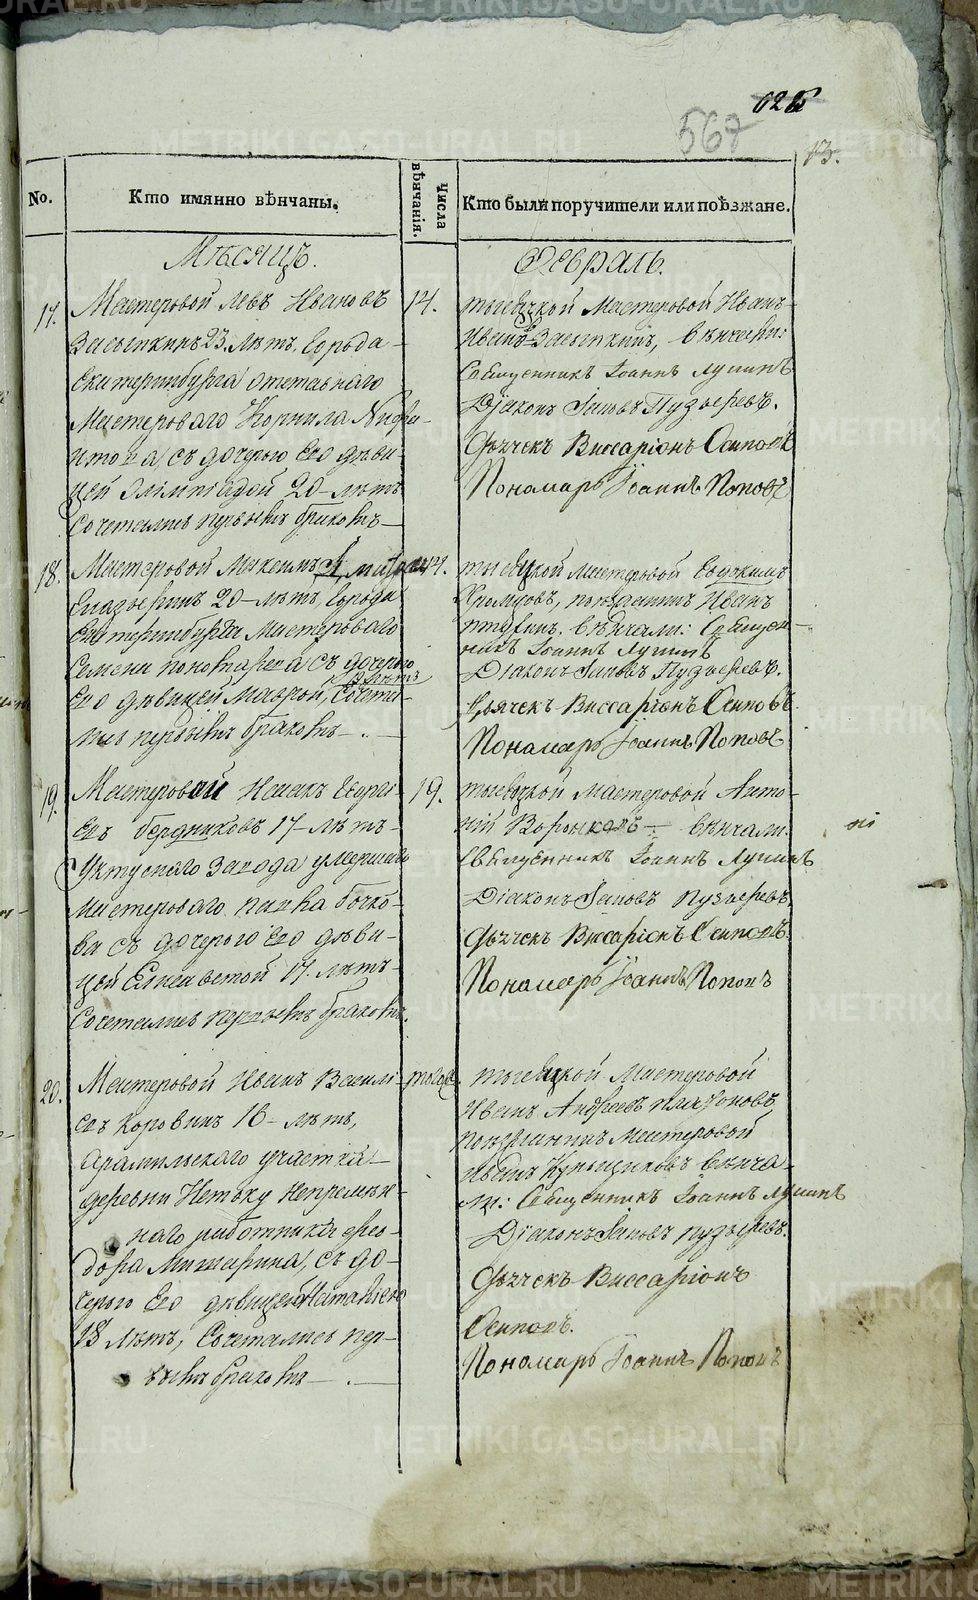 625
567
13.
No.
Кто имянно вѣнчаны.
Числа вѣнчанія.
Кто были поручители или поѣзжане.
Мѣсяцъ.
Февраль.
17.
Мастеровой Левъ Ивановъ
Засыпкинъ 23. лѣтъ, Города
Екатеринбурга отставнаго
Мастероваго Корнила Никфи-
това, съ дочерью Его дѣви-
цей Олімпіадой 20-лѣтъ
Сочетались первымъ бракомъ
14.
тысяцкой Мастеровой Иванъ
Ивановъ Засыпкинъ, вѣнчали:
Священникъ Іоаннъ Лучинъ
Діаконъ Іаковъ Пузыревъ.
Дьячекъ Виссаріонъ Осиповъ
Пономарь Іоаннъ Поповъ
18.
Мастеровой Максимъ
20-лѣтъ, Города
Екатеринбурга Мастероваго
Семена Пономарева съ дочерью
Его дѣвицей Маврой, Сочета-
лись первымъ бракомъ
14.
тысяцкой Мастеровой Евдокимъ
поезжанинъ Иванъ
вѣнчали: Священ-
никъ Іоаннъ Лучинъ
Діаконъ Іаковъ Пузыревъ.
Дьячекъ Виссаріонъ Осиповъ
Пономарь Іоаннъ Поповъ
19.
Мастеровой Исаакъ Георгі-
евъ Бердниковъ 17-лѣтъ
Уктускаго Завода умершаго
Мастероваго Павла Бочко-
ва съ дочерью Его дѣви-
цей Елисаветой 17. лѣтъ
Сочетались первымъ бракомъ.
19.
тысяцкой Мастеровой Анто-
ній вѣнчали.
Священникъ Іоаннъ Лучинъ
Діаконъ Іаковъ Пузыревъ
Дьячекъ Виссаріонъ Осиповъ.
Пономарь Іоаннъ Поповъ
20.
Мастеровой Иванъ Василі-
евъ Коровинъ 16-лѣтъ,
Арамильскаго участка
деревни непремѣн-
наго работника Ѳео-
дора Мишарина, съ до-
черью Его дѣвицей Наталіею
18 лѣтъ, Сочетались пер-
вымъ бракомъ
тогож.
тысяцкой Мастеровой
Иванъ Андреевъ
поезжанинъ Мастеровой
Иванъ вѣнча-
ли: Священникъ Іоаннъ Лучинъ
Діаконъ Іаковъ Пузыревъ.
Дьячекъ Виссаріонъ
Осиповъ.
Пономарь Іоаннъ Поповъ
METRIKI.GASO-URAL.RU